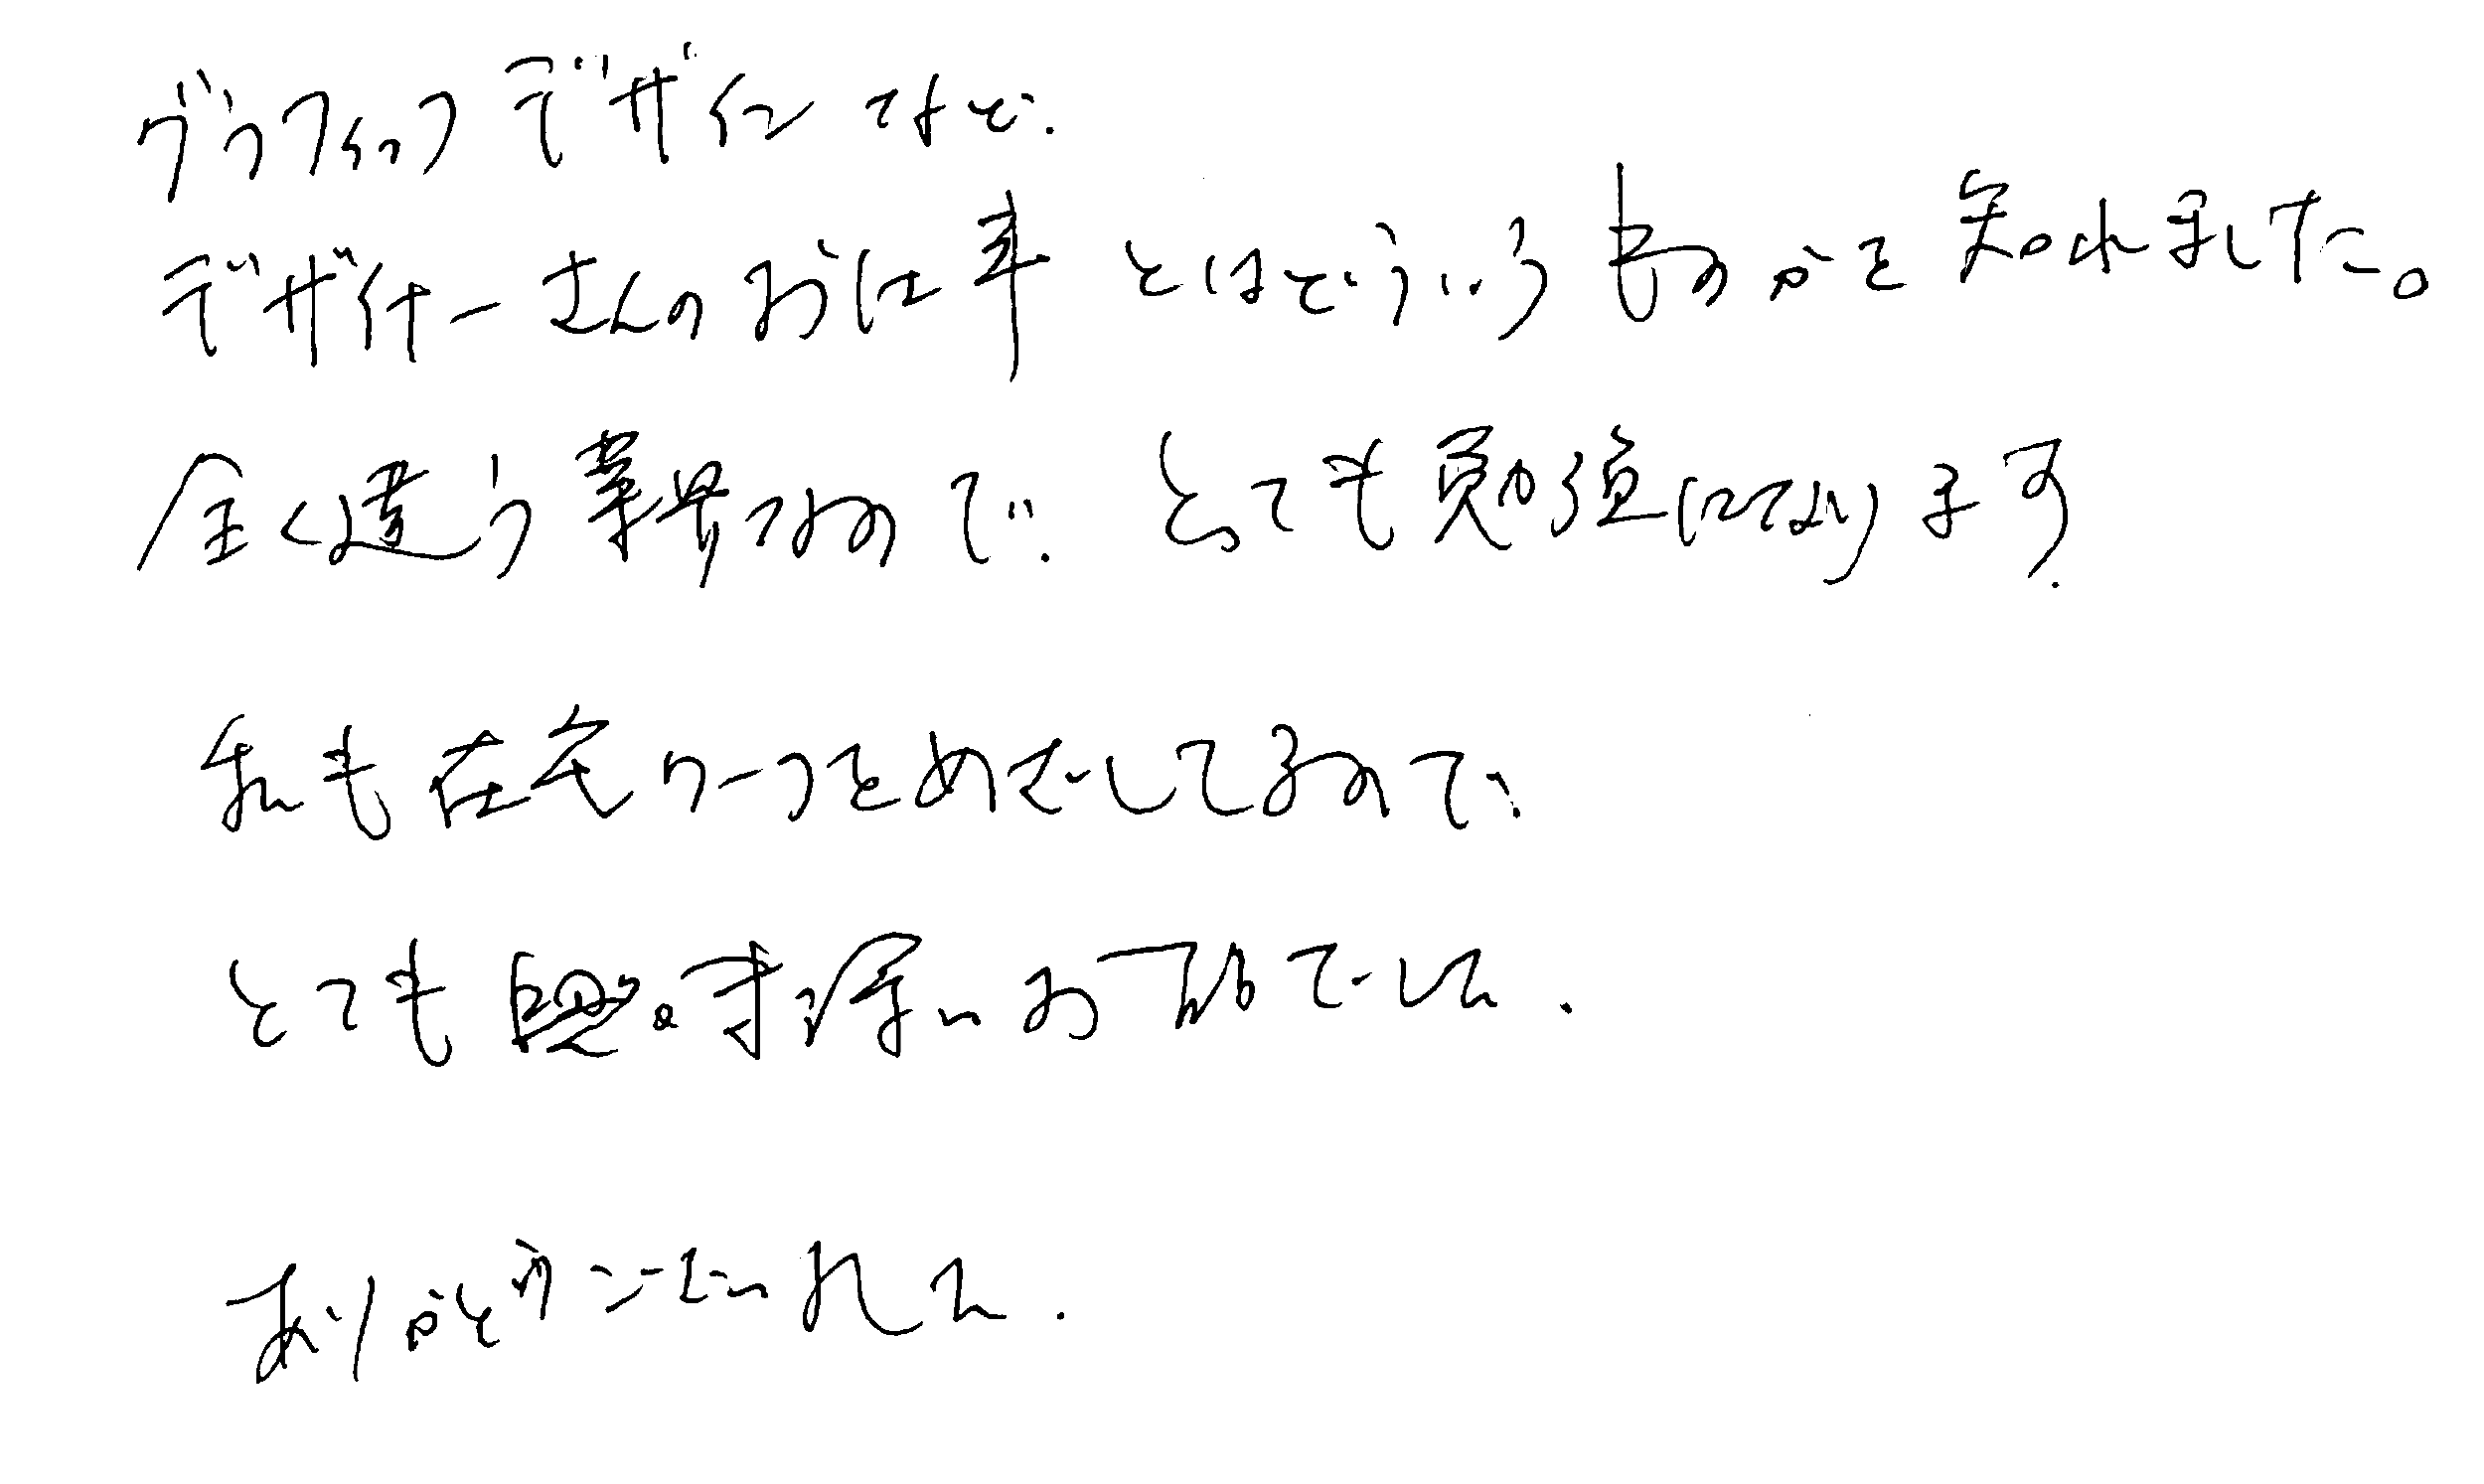 グラフィックデザインなど.
デザイナーさんのお仕事とはどういうものかを知れました。
全く違う業界なので. とても勉強になります.
私も在宅ワークをめざしてるので.
とても興味深いお話でした.
ありがとうございました.